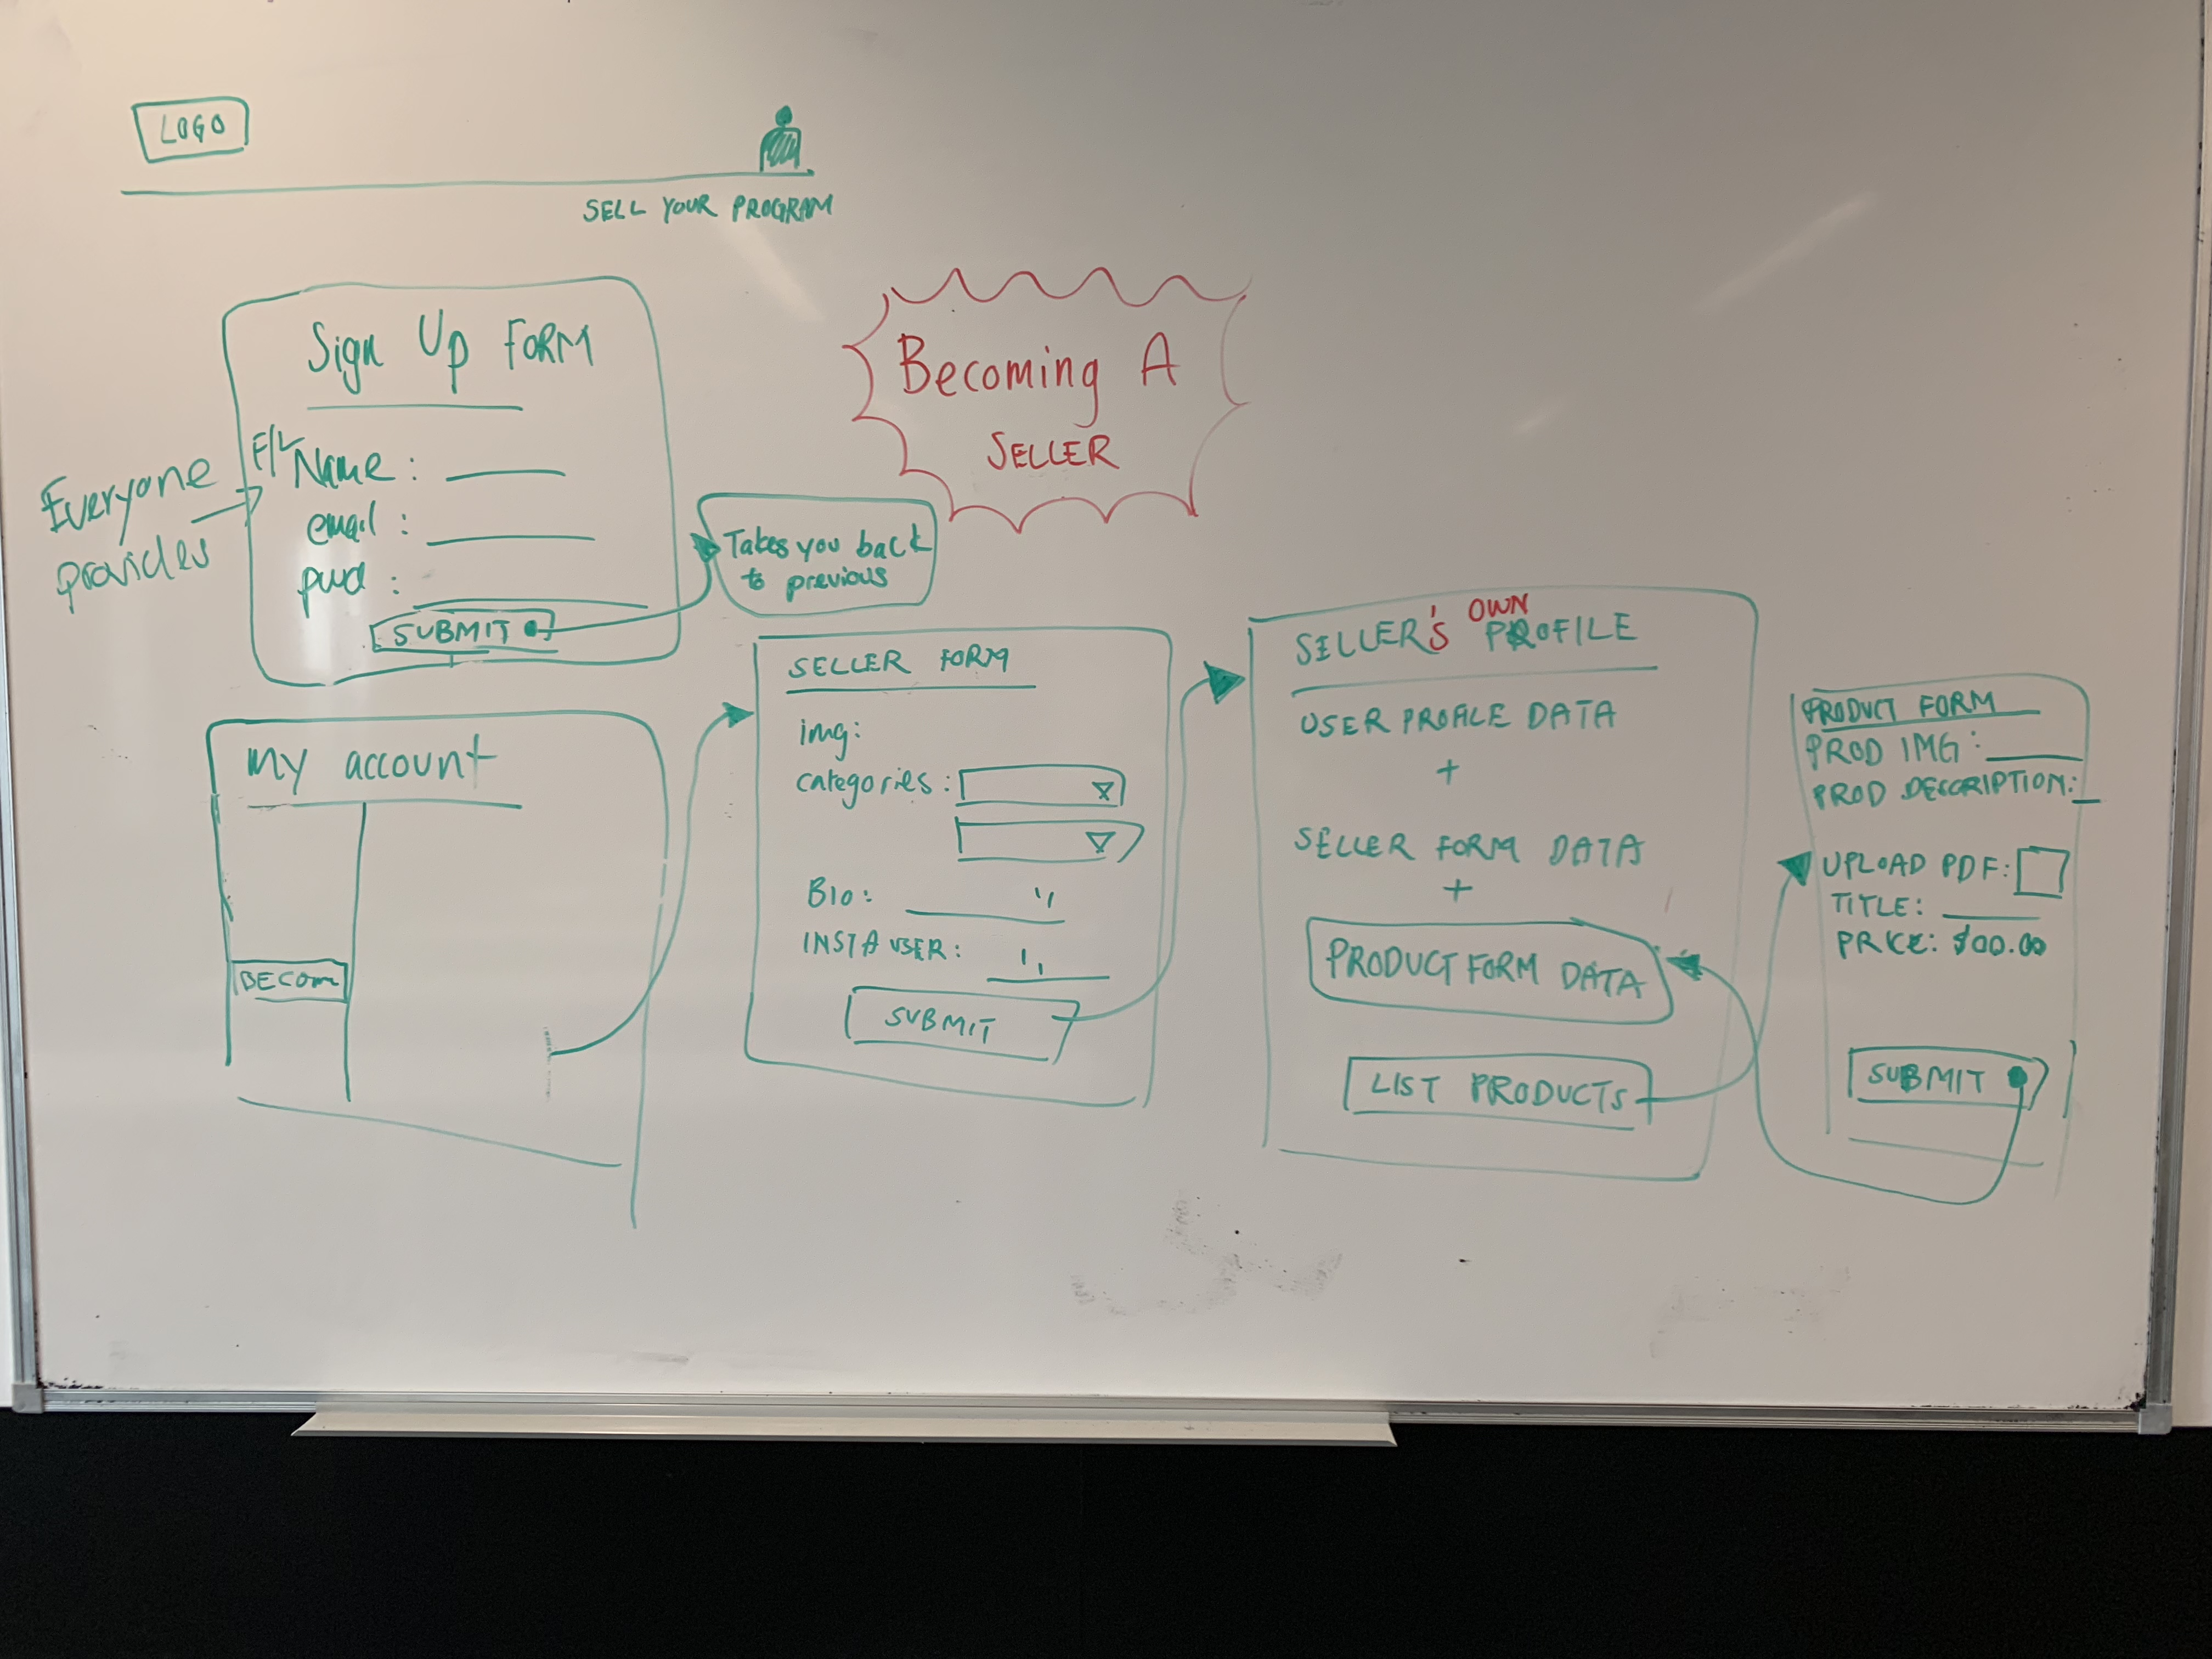 LOGO
SELL YOUR PROGRAM
Sign Up FORM
Everyone
provides
F/L Name :
email :
pwd :
SUBMIT
Becoming A
SELLER
Takes you back
to previous
my account
BECOM
SELLER FORM
img:
categories :
BIO:
INSTA USER:
SUBMIT
SELLER'S OWN PROFILE
USER PROFILE DATA
+
SELLER FORM DATA
+
PRODUCT FORM DATA
LIST PRODUCTS
PRODUCT FORM
PROD IMG :
PROD DESCRIPTION:
UPLOAD PDF:
TITLE:
PRICE: $00.00
SUBMIT